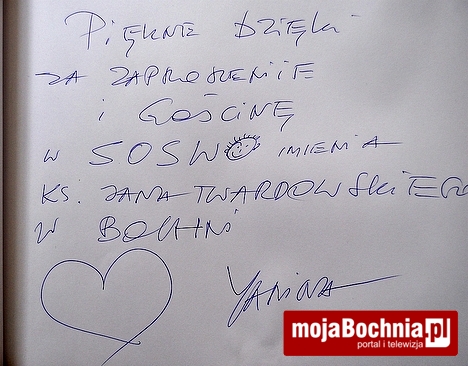 PIĘKNE DZIĘKI
ZA ZAPROSZENIE
i GOŚCINĘ
W SOSWO IMIENIA
KS. JANA TWARDOWSKIEGO
W BOCHNI
YANINA
mojaBochnia.pl
portal i telewizja